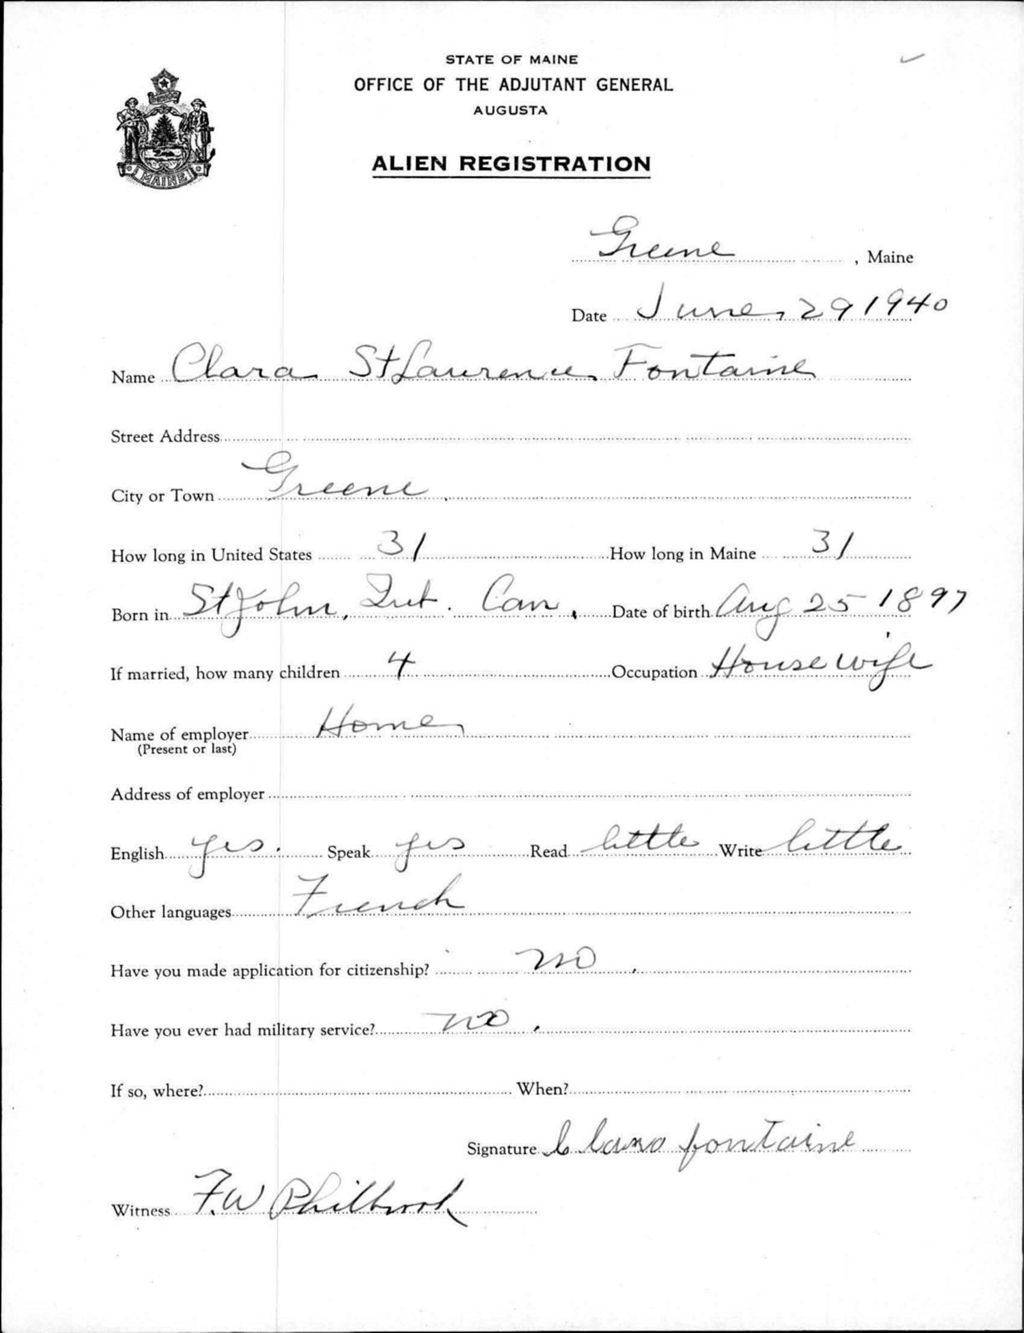 STATE OF MAINE
OFFICE OF THE ADJUTANT GENERAL
AUGUSTA
ALIEN REGISTRATION
MAINE
Greene, Maine
Date June 29 1940
Name Clara St Laurence Fontaine
Street Address
City or Town Greene
How long in United States 31 How long in Maine 31
Born in St John, Que. Can, Date of birth Aug 25 1897
If married, how many children 4 Occupation House wife
Name of employer Home
(Present or last)
Address of employer
English yes. Speak yes Read little Write little
Other languages French
Have you made application for citizenship? no.
Have you ever had military service? no.
If so, where? When?
Signature Clara fontaine
Witness F. W Philbrook